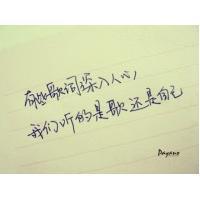 有些歌词深入人心
我们听的是歌 还是自己
Dayano